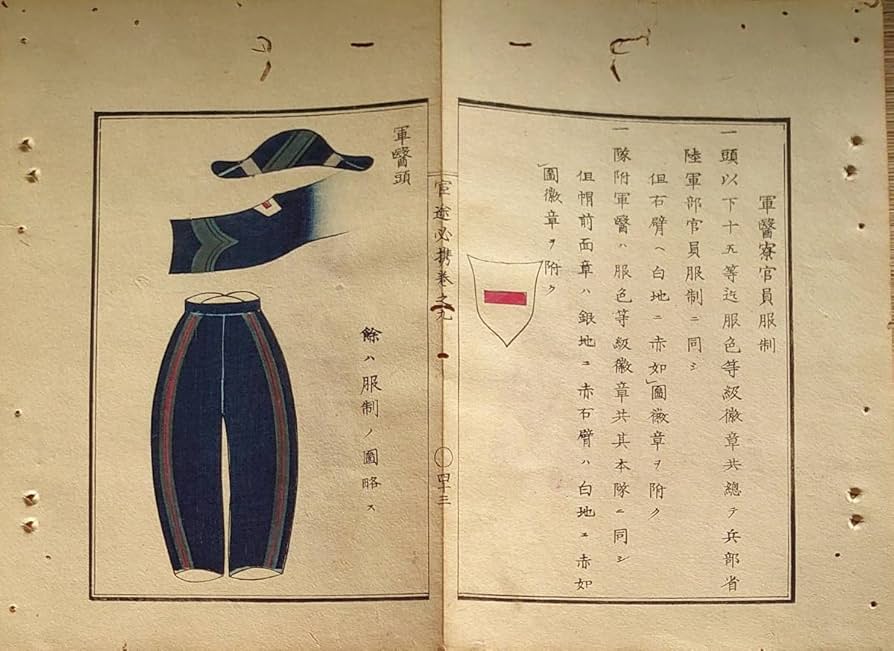 軍醫寮官員服制
一頭以下十五等迄服色等級徽章共總テ兵部省
陸軍部官員服制ニ同シ
但右臂ヘ白地ニ赤如圖徽章ヲ附ク
一隊附軍醫ハ服色等級徽章共其本隊ニ同シ
但帽前面章ハ銀地ニ赤右臂ハ白地ニ赤如
圖徽章ヲ附ク
官途必携卷之九
〇四十三
軍醫頭
餘ハ服制ノ圖略ス